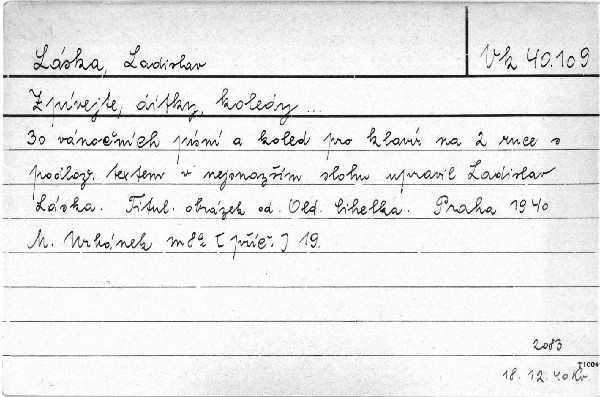 Láska, Ladislav
Vk 40.109
Zpívejte, dítky, koledy ...
30 vánočních písní a koled pro klavír na 2 ruce s
podlož. textem v nejsnazším slohu upravil Ladislav
Láska. Titul. obrázek od Old. Cihelka. Praha 1940
M. Urbánek m 8° [příč.] 19.
2083
18. 12. 40 Kr.